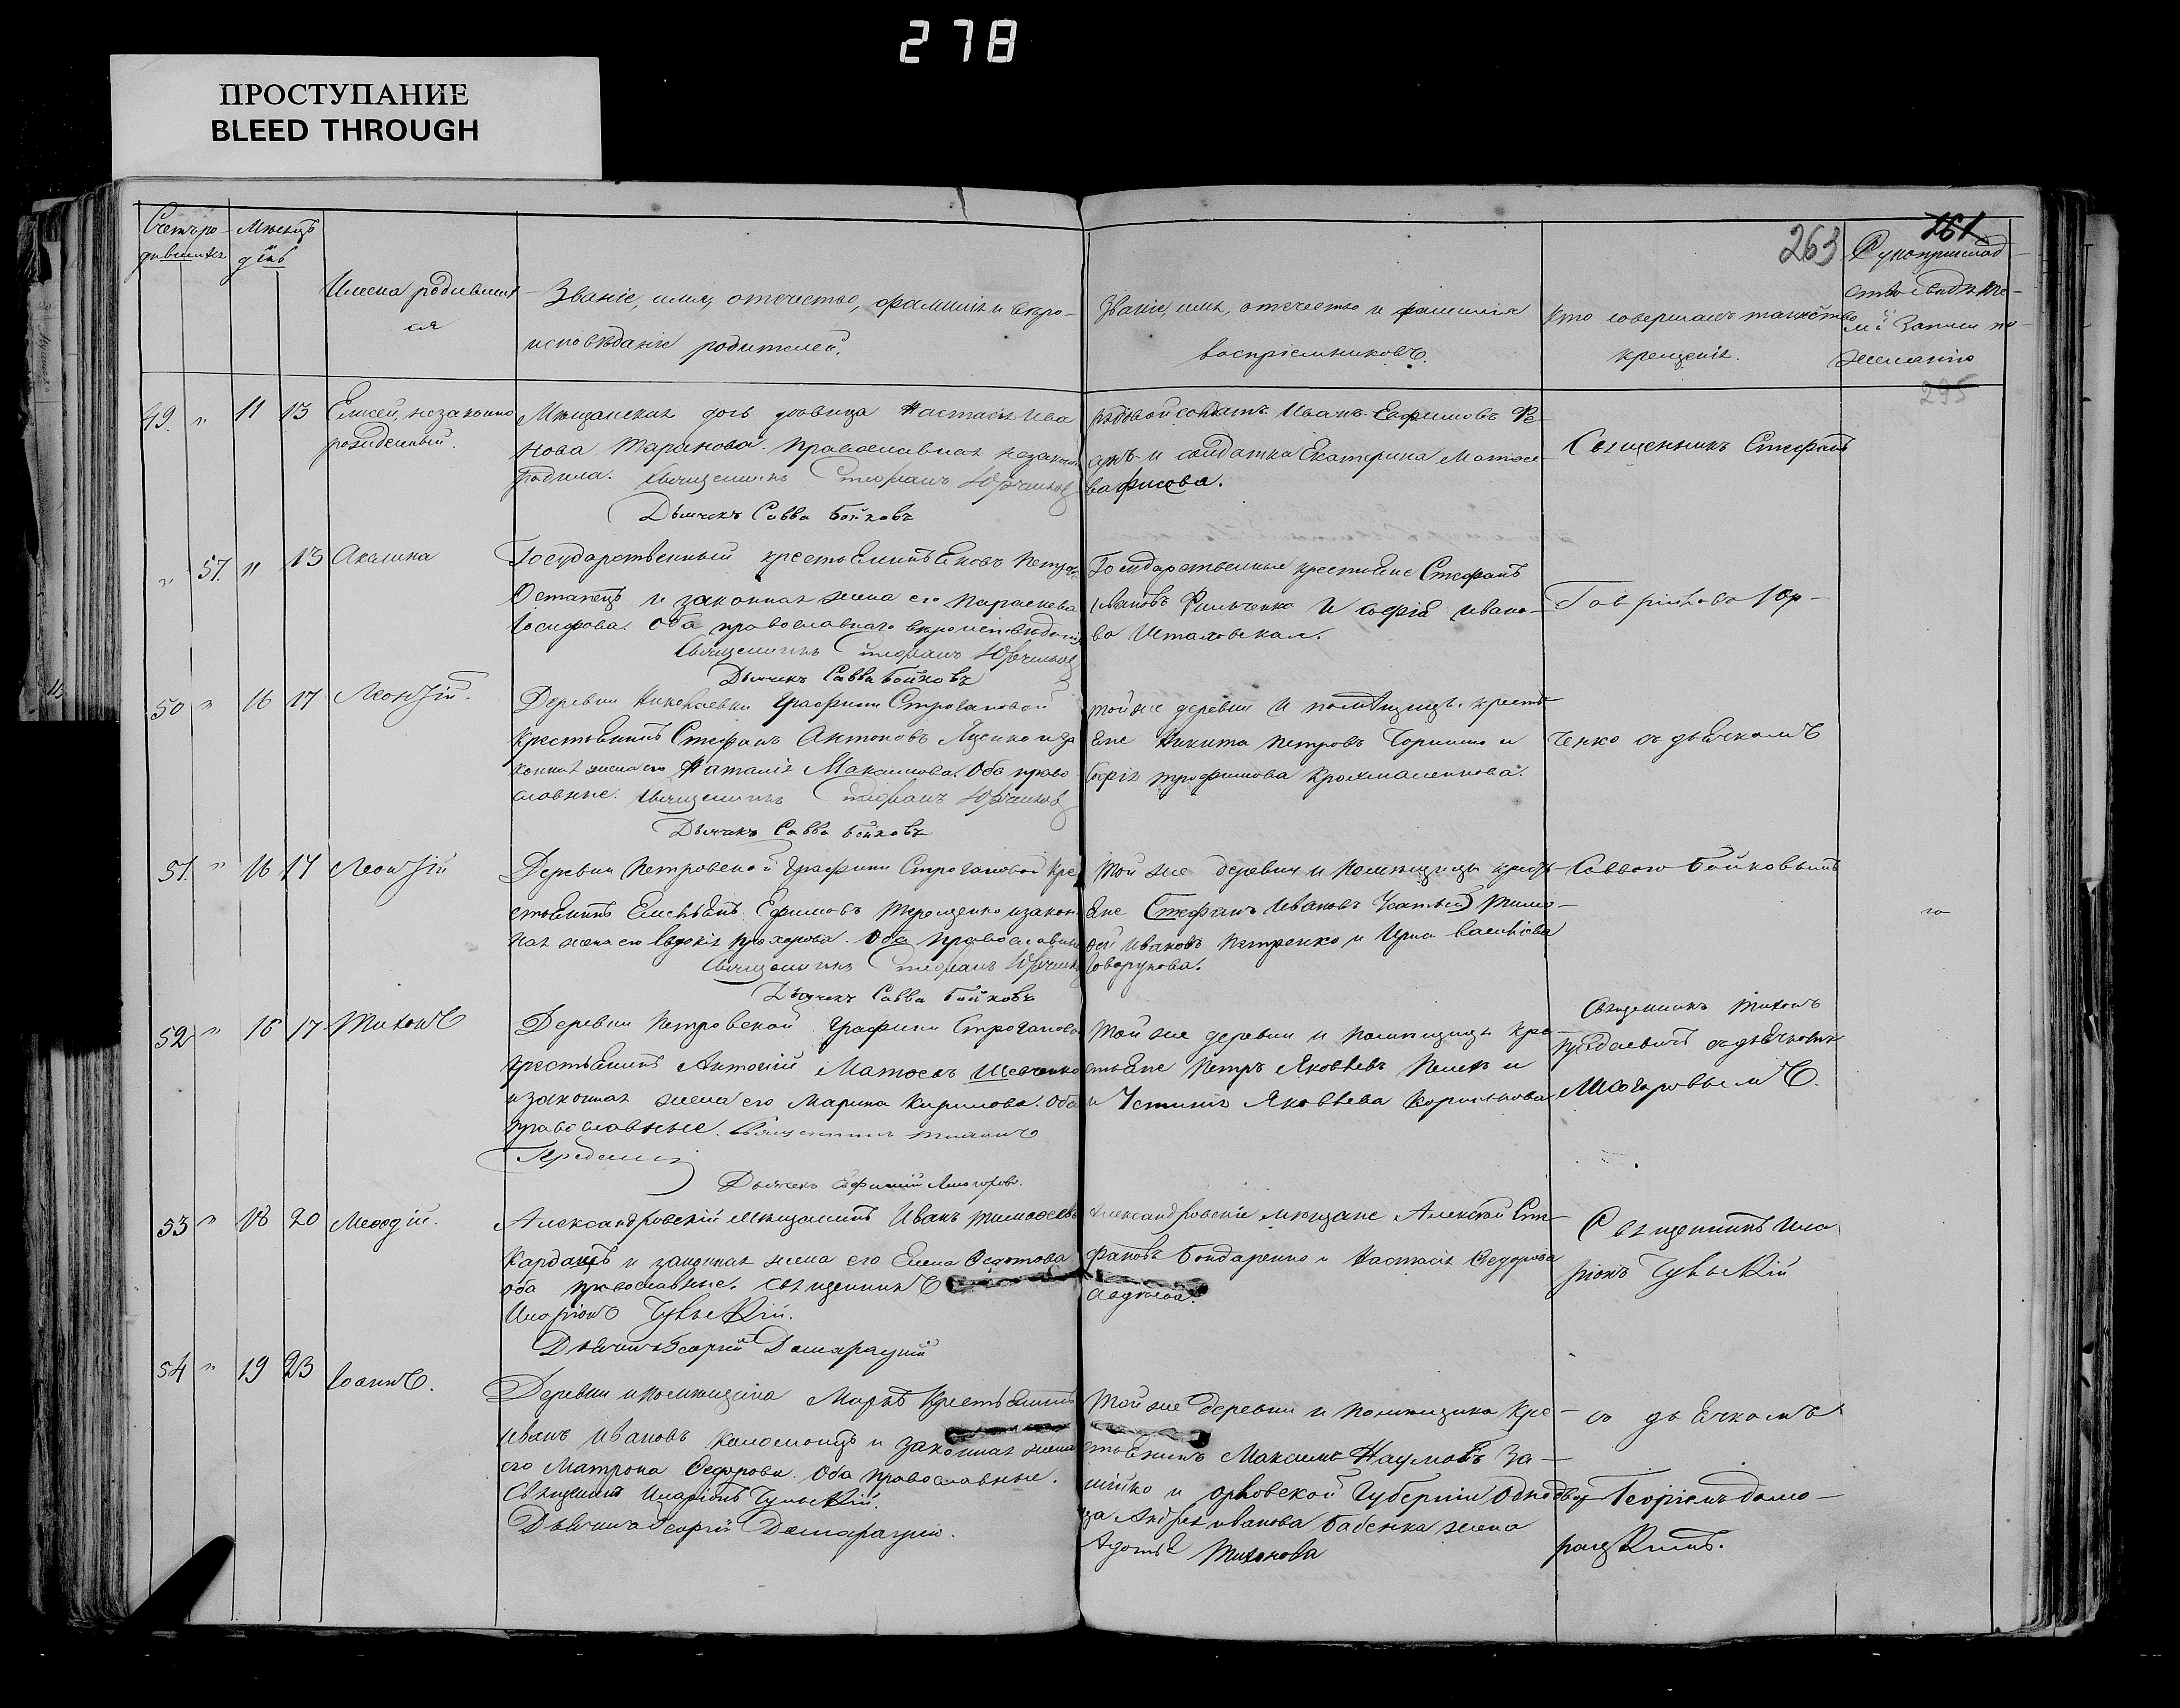 278
ПРОСТУПАНИЕ
BLEED THROUGH
261
263
Счетъ ро-
дившихся
Мѣсяцъ
день
Имена родивших
ся
Званіе, имя, отчество, фамилія и вѣро-
исповѣданіе родителей.
Званіе, имя, отчество и фамилія
воспріемниковъ.
Кто совершалъ таинство
крещенія.
Рукоприклад
ство свидѣте-
лей записи по
желанію
295
49. " 11 13 Елисей, незаконно
рожденный.
Мѣщанская дочь дѣвица Настасія Ива
нова Таранова. Православная незаконно
родила. Священникъ Стефанъ Юрченко
Дьячекъ Савва Бойковъ
Рядовой солдатъ Иванъ Ефимовъ
и солдатка Екатерина
Священникъ Стефанъ
" 51. 11 13 Акилина
Государственный крестьянинъ Яковъ Петровъ
Остапецъ и законная жена его Параскева
Іосифова. Оба православнаго вѣроисповѣданія
Священникъ Стефанъ Юрченко
Дьячекъ Савва Бойковъ
Государственные крестьяне Стефанъ
Ивановъ Фильченко и Софія Ивано-
ва
Гавріиловъ Юр-
50 " 16 17 Леонтій.
Деревни Николаевки Графини Строгановой
крестьянинъ Стефанъ Антоновъ Яценко и за
конная жена его Наталія Максимова. Оба право
славные. Священникъ Стефанъ Юрченко
Дьячекъ Савва Бойковъ
Той же деревни и помѣщицы крестья
яне Никита Петровъ и
Софія Трофимова
ченко съ дьячкомъ
51. " 16 17 Леонтій
Деревни Петровской Графини Строгановой кре
стьянинъ Емельянъ Ефимовъ Терещенко и закон
ная жена его Евдокія Прохорова. Оба православные
Священникъ Стефанъ Юрченко
Дьячекъ Савва Бойковъ
Той же деревни и помѣщицы кресть
яне Стефанъ Ивановъ Усатый Тимо-
фей Ивановъ Петренко и Ирина Васильева
Говорунова.
Саввою Бойковымъ
52 " 16 17 Тихонъ
Деревни Петровской Графини Строгановой
крестьянинъ Антоній Матвѣевъ Шевченко
и законная жена его Марина Кирилова. Оба
православные. Священникъ Тихонъ
Дьячекъ
Той же деревни и помѣщицы кре-
стьяне Петръ Яковлевъ и
и Устинія Яковлева
Священникъ Тихонъ
съ дьячкомъ
53 " 18 20 Меѳодій.
Александровскій мѣщанинъ Иванъ Тимоѳеевъ
и законная жена его Елена Ѳедотова
оба православные. Священникъ
Иларіонъ
Дьячекъ Георгій Домарацкій
Александровскіе мѣщане Алексѣй Сте
фановъ Бондаренко и Настасія Ѳедорова
Священникъ Ила
ріонъ
54 " 19 23 Іоаннъ.
Деревни и помѣщика Марка крестьянинъ
Иванъ Ивановъ Коломоецъ и законная жена
его Матрона Ѳедорова. Оба православные.
Священникъ Иларіонъ
Дьячекъ Георгій Домарацкій.
Той же деревни и помѣщика кре-
стьянинъ Максимъ Наумовъ За-
и Орловской Губерніи однодвор
ца Андрея Иванова Бабенка жена
Тихонова
съ дьячкомъ
Георгіемъ Домо-
рацкимъ.